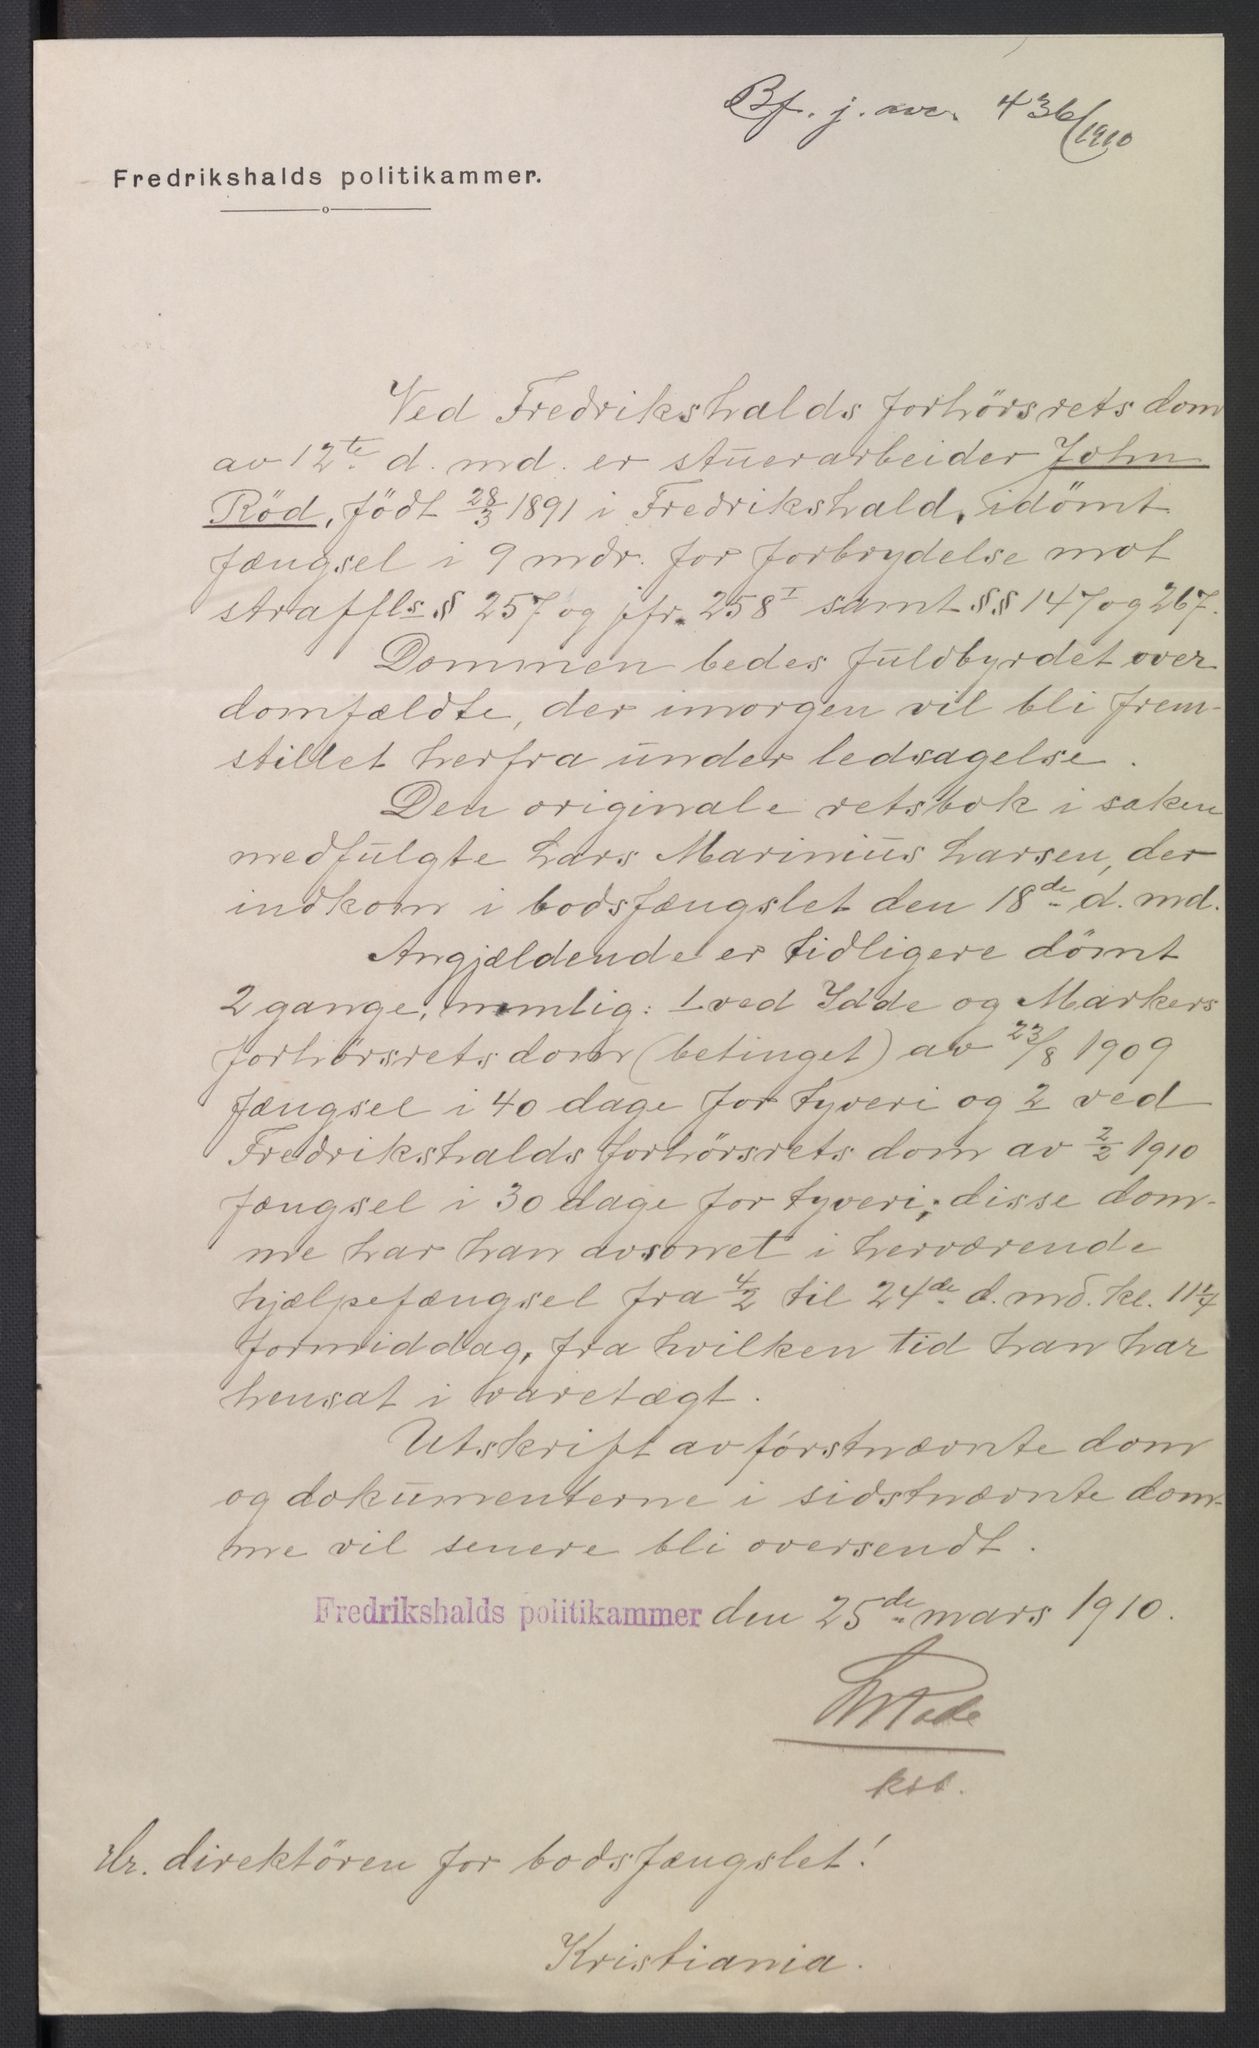 Bf. j. nr. 436/1910
Fredrikshalds politikammer.
Ved Fredrikshalds forhörsrets dom
av 12te d. md. er stuerarbeider John
Röd, födt 28/3 1891 i Fredrikshald, idömt
fængsel i 9 mdr. for forbrydelse mot
straffls § 257 og jfr. 258 I samt §§ 147 og 267.
Dommen bedes fuldbyrdet over
domfældte, der imorgen vil bli frem-
stillet herfra under ledsagelse.
Den originale retsbok i saken
medfulgte Lars Marinius Larsen, der
indkom i bodsfængslet den 18de d. md.
Angjældende er tidligere dömt
2 gange, nemlig: 1 ved Idde og Markers
forhörsrets dom (betinget) av 23/8 1909
fængsel i 40 dage for tyveri og 2 ved
Fredrikshalds forhörsrets dom av 2/2 1910
fængsel i 30 dage for tyveri; disse dom-
me har han avsonet i herværende
hjælpefængsel fra 4/2 til 24de d. md. kl. 11 1/4
formiddag, fra hvilken tid han har
hensat i varetægt.
Utskrift av förstnævnte dom
og dokumenterne i sidstnævnte dom-
me vil senere bli oversendt.
Fredrikshalds politikammer den 25de mars 1910.
kst.
Hr. direktören for bodsfængslet!
Kristiania.